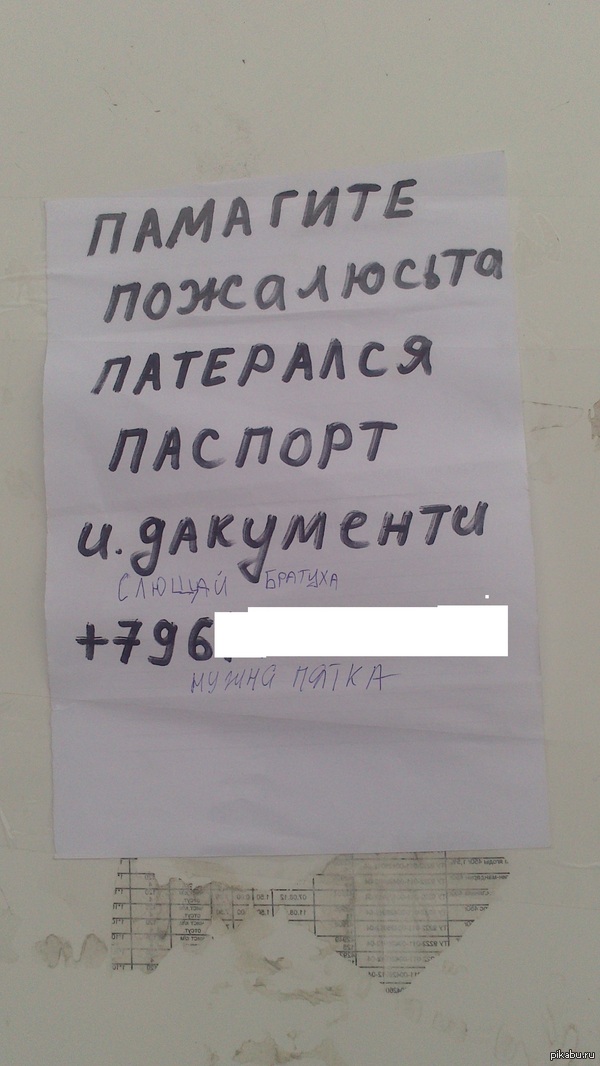 ПАМАГИТЕ
пожалюсьта
ПАТЕРАЛСЯ
ПАСПОРТ
и.дакументи
СЛЮЩАЙ БРАТУХА
+796
НУЖНА ПЯТКА
07.03.12
11.08.
pikabu.ru